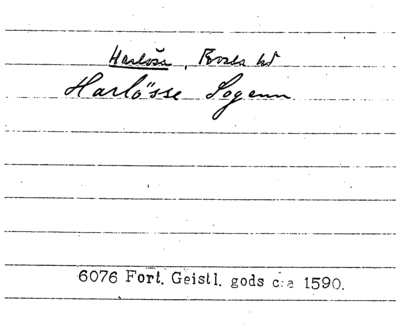 Harlösa, Torna hd
Harlösse Sogenn
6076 Fort. Geistl. gods c:a 1590.